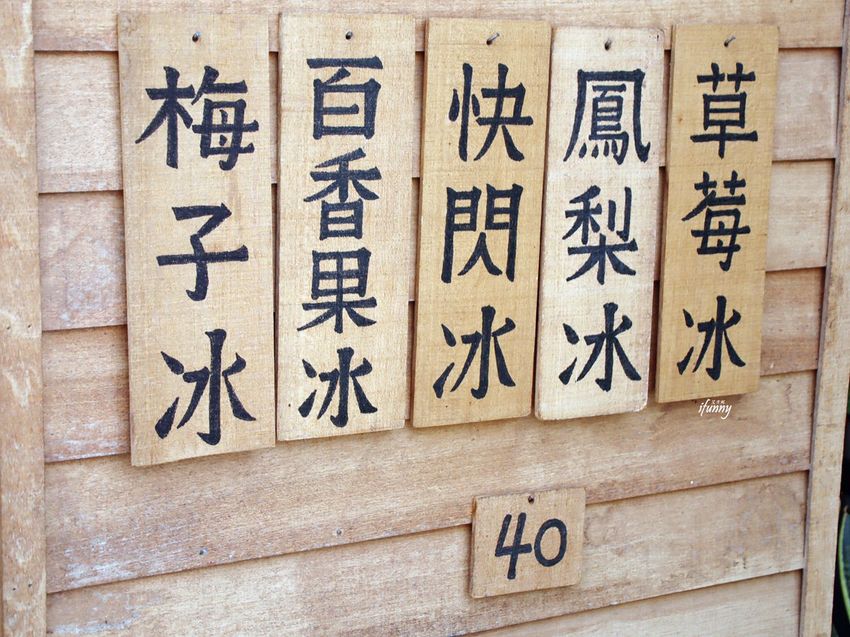 草莓冰
鳳梨冰
快閃冰
百香果冰
梅子冰
40
ifunny